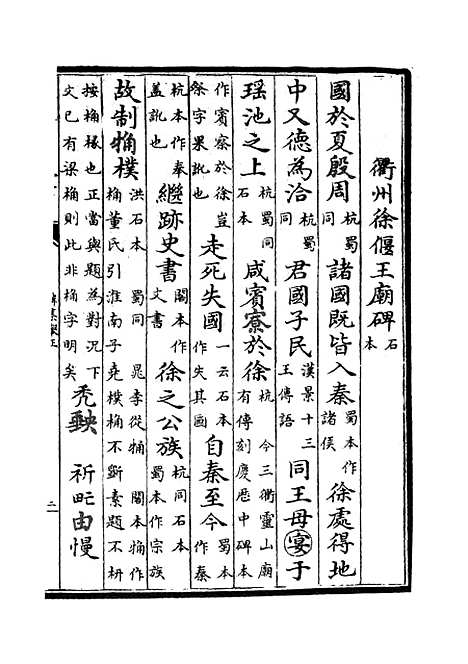 衢州徐偃王廟碑石本
國於夏殷周杭蜀同諸國既皆入秦蜀本作諸侯徐處得地
中又德為洽杭蜀同君國子民漢景十三王傳語同王母宴于
瑶池之上杭蜀同石本咸賓寮於徐杭 今三衢靈山廟有傳刻慶厯中碑本
作賓察於徐豈祭字果訛也走死失國一云石本作失其國自秦至今蜀本作秦
杭本作奉蓋訛也繼跡史書閣本作文書徐之公族杭同石本蜀本作宗族
故制觕樸洪石本 蜀同 晁李從觕 閣本觕作桷董氏引淮南子堯樸桷不斵素題不枅
按桷椽也正當與題為對况下文已有梁桷則此非桷字明矣禿 祈甿由慢
二